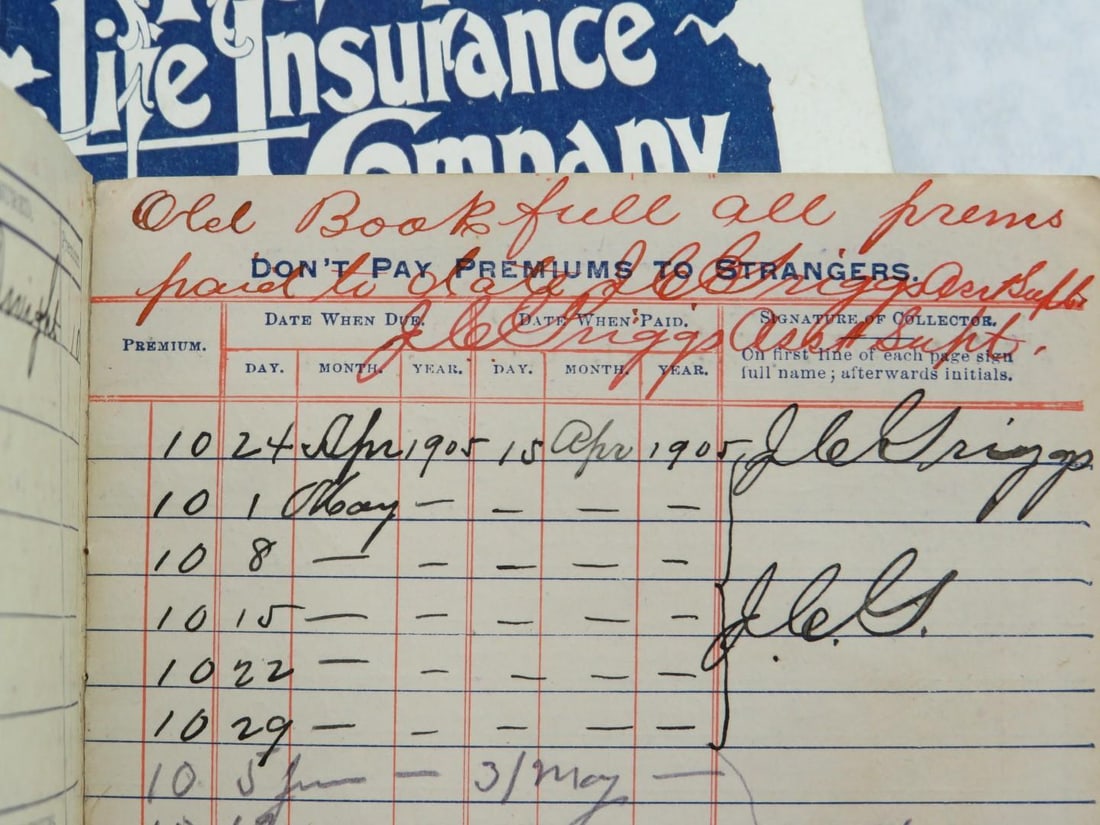 Life Insurance
Company
Old Book full all prems
DON'T PAY PREMIUMS TO STRANGERS.
paid to date J C Griggs Asst Supt
J C Griggs Asst Supt.
PREMIUM. DATE WHEN DUE. DATE WHEN PAID. SIGNATURE OF COLLECTOR.
DAY. MONTH. YEAR. DAY. MONTH. YEAR. On first line of each page sign
full name; afterwards initials.
10 24 Apr 1905 15 Apr 1905 J C Griggs
10 1 May — — — —
10 8 — — — — —
10 15 — — — — — J. C. G.
10 22 — — — — —
10 29 — — — — —
10 5 Jun — 31 May —